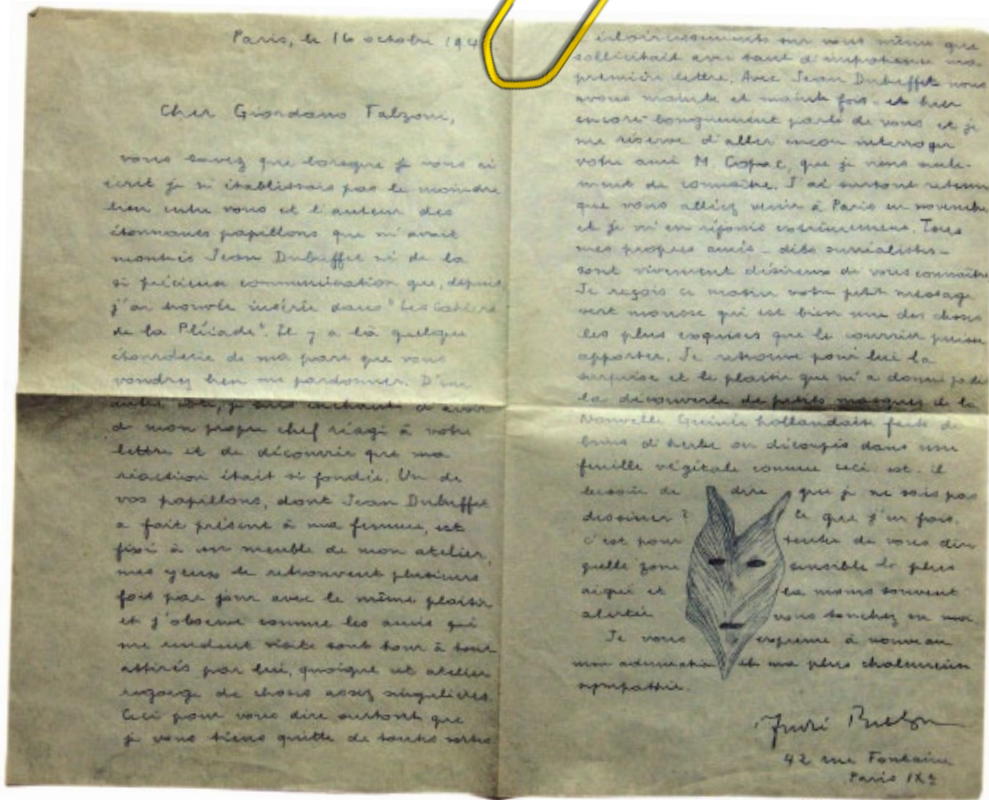 Paris, le 16 octobre 194
Cher Giordano Falzoni,
vous savez que lorsque je vous ai
écrit je n'établissais pas le moindre
lien entre vous et l'auteur des
étonnants papillons que m'avait
montrés Jean Dubuffet ni de la
si précieuse communication que, depuis,
j'ai trouvée insérée dans "Les Cahiers
de la Pléiade". Il y a là quelque
étourderie de ma part que vous
voudrez bien me pardonner. D'un
autre côté, je suis enchanté d'avoir
de mon propre chef réagi à votre
lettre et de découvrir que ma
réaction était si fondée. Un de
vos papillons, dont Jean Dubuffet
a fait présent à ma femme, est
fixé à un meuble de mon atelier,
mes yeux le retrouvent plusieurs
fois par jour avec le même plaisir
et j'observe comme les amis qui
me rendent visite sont tour à tour
attirés par lui, quoique cet atelier
regorge de choses assez singulières.
Ceci pour vous dire surtout que
je vous tiens quitte de toutes sortes
d'éclaircissements sur vous-même que
sollicitait avec tant d'impatience ma
première lettre. Avec Jean Dubuffet nous
avons mainte et mainte fois - et hier
encore longuement parlé de vous et je
me réserve d'aller encore interroger
votre ami M. que je viens seule-
ment de connaître. J'ai surtout retenu
que vous alliez venir à Paris en novembre
et je m'en réjouis extrêmement. Tous
mes propres amis - dits surréalistes -
sont vivement désireux de vous connaître.
Je reçois ce matin votre petit message
vert mousse qui est bien une des choses
les plus exquises que le courrier puisse
apporter. Je retrouve pour lui la
surprise et le plaisir que m'a donné jadis
la découverte de petits masques de la
Nouvelle Guinée hollandaise faits de
brins d'herbe ou découpés dans une
feuille végétale comme ceci. est-il
besoin de dire que je ne sais pas
dessiner? Ce que j'en fais,
c'est pour tenter de vous dire
quelle zone sensible la plus
aiguë et la moins souvent
alertée vous touchez en moi.
Je vous exprime à nouveau
mon admiration et ma plus chaleureuse
sympathie.
André Breton
42 rue Fontaine
Paris IXe